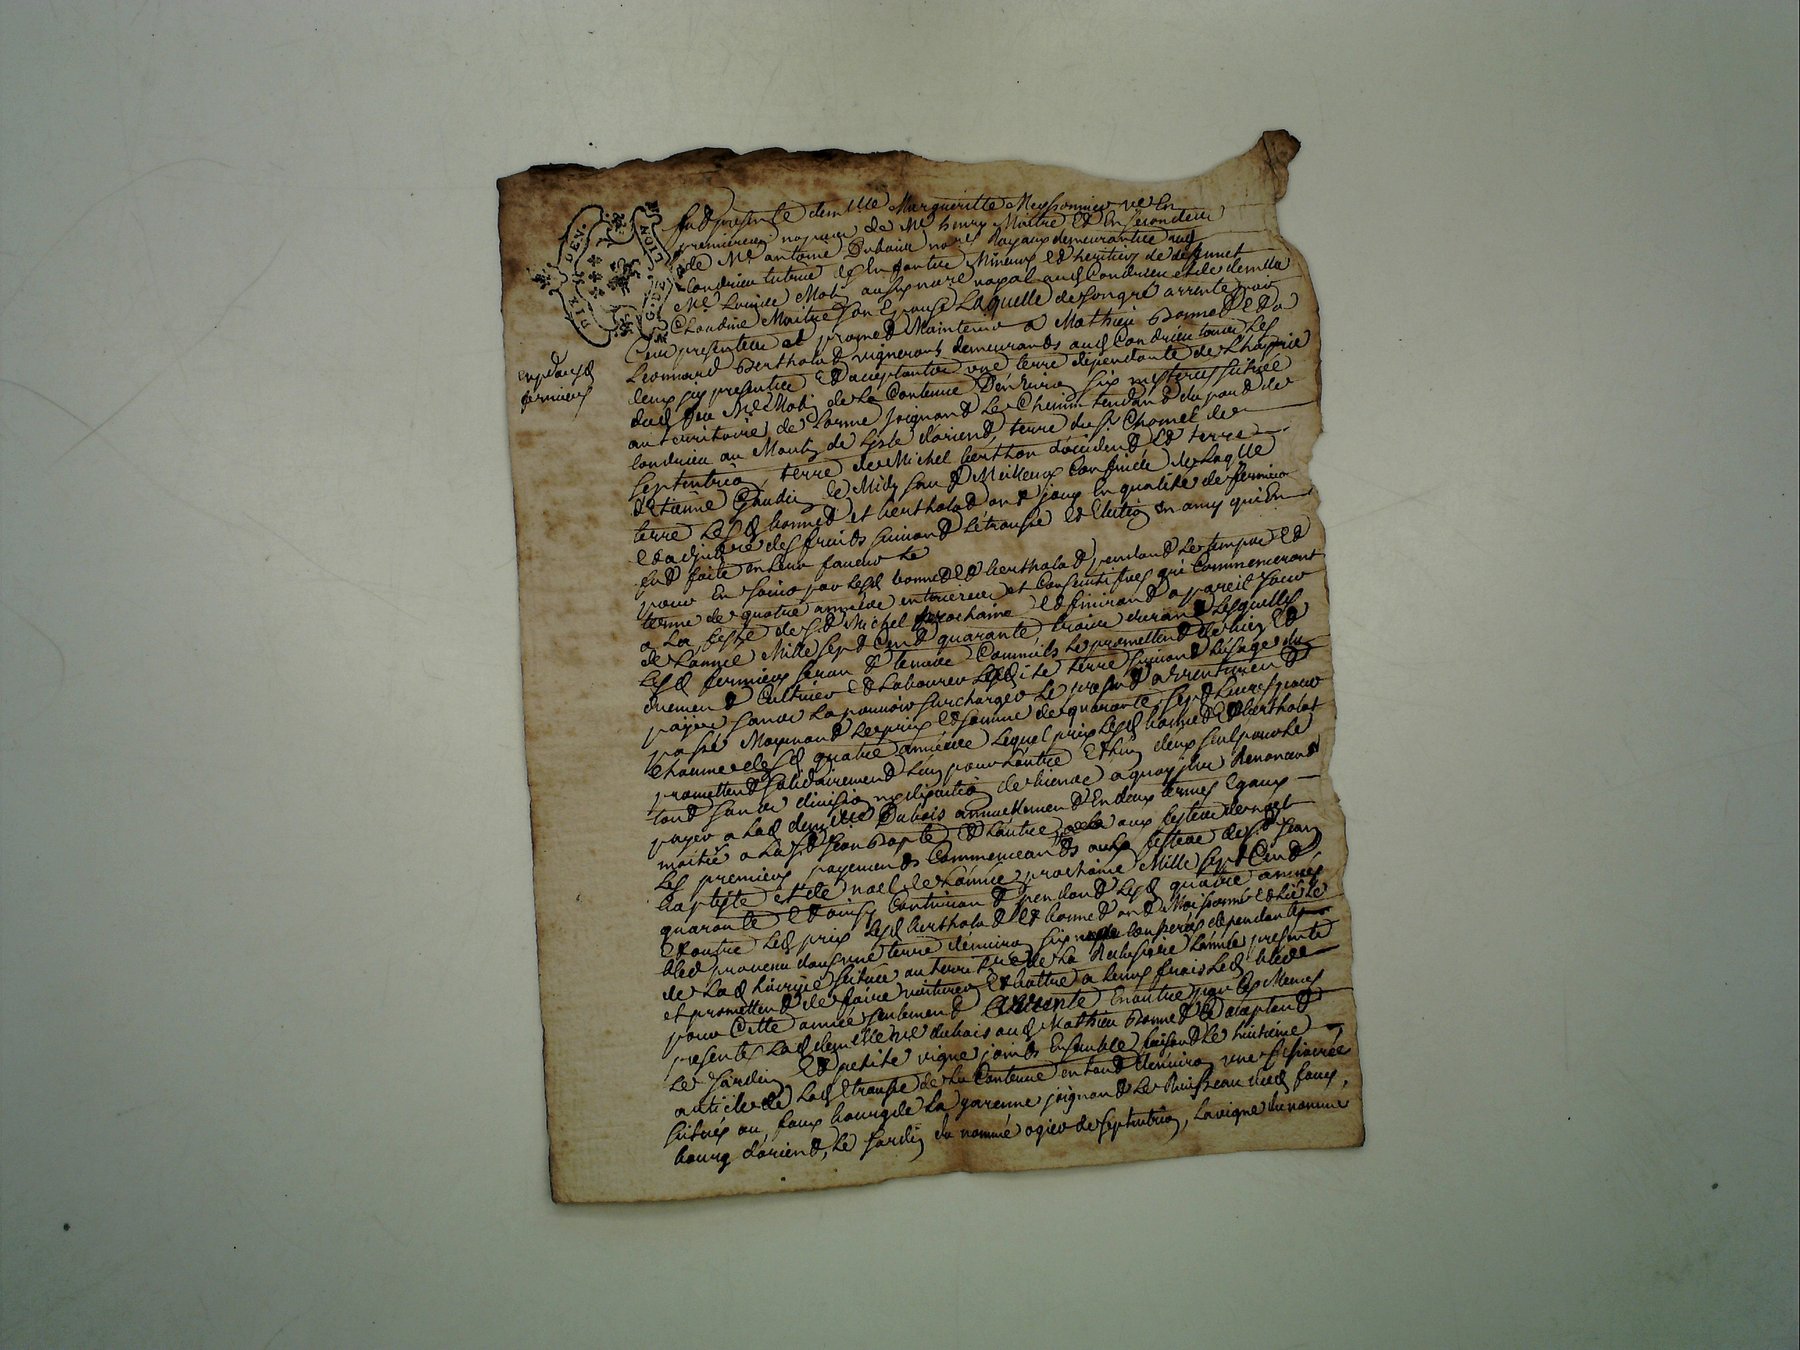 DIX DEN.
G. DE LION
fut presente demlle Margueritte Meyssonnier ve En
premieres nopces de Me henry Maitre Et En secondes
de Me antoine Dubois nores Royaux demeurantte aud
Condrieu tutrice des Enfants Mineurs Et heritiers de deffunct
Me Louis Mo aussy nore royal aud Condrieu et de demlle
Claudine Maitre son Epouse Laquelle de son gré arrente par
Ces presentes et promet Maintenir a Mathieu bonnet Et a
Leonnard bertholat vignerons demeurants aud Condrieu tous Les
deux icy presents Et acceptants une terre dependante de L'hoyrie
dud feu Me Mo de La Contenue D'environ six mesures scituée
au territoire de Lorme joignant Le Chemin tendant du pont de
Condrieu au de d'orient, terre du Sr Chomel de
septentrion, terre de Michel berthon d'occident Et terre
d'Etienne Gaudin de Midy sauf Meilleurs Confins de Laqlle
terre Lesd bonnet et bertholat ont joüy En qualité de fermiers
Et des fruits suivant L'etrousse Et Election En amy qui En
fut faite en Leur faveur Le
pour En joüir par Lesd bonnet Et bertholat pendant Le temps Et
terme de quatre années entieres et Consecutives qui Commenceront
a La feste de St Michel prochaine Et finiront a pareil jour
de L'année Mille sept Cent quarante trois durant Lesquelles
Lesd fermiers seront tenus Comme ils Le promettent de bien Et
duement Cultiver Et Labourer Lesdite terre suivant L'usage du
païs sans La pouvoir surcharger Le present arrentement
passé Moyenant Le prix Et somme de quarante sept Livres pour
Chacune desd quatre années Lequel prix Lesd bonnet Et bertholat
promettent solidairement L'un pour L'autre Et L'un deux seul pour Le
tout sans division ny discution de biens a quoy ils Renoncent
payer a Lad demlle Dubois annuellement En deux termes Egaux
moitié a La St Jean bapte Et L'autre aux festes de noel
Les premiers payements Commenceants aux festes de St Jean
baptiste et de noel de L'année prochaine Mille sept Cent
quarante Et ainsy Continuant pendant Lesd quatre années
Et outre Led prix Lesd bertholat Et bonnet ont Moissonné Et Lié Le
bled provenu dans une terre d'environ six couperées dependante
de Lad hoirie scituée au territoire de La L'année presente
et promettent de faire voiturer Et battre a Leurs frais Led bled
pour Cette année seulement arrente En outre par Les Memes
presentes Lad demlle ve dubois aud Mathieu bonnet acceptant
Le jardin Et petite vigne joints Ensemble faisant Le huitiéme
article de Lad Etrousse de La Contenue en tout d'environ une
scitués au faux bourg de La garenne joignant Le Ruisseau dud faux
bourg d'orient, Le jardin du nommé ogier de septentrion, La vigne du nommé